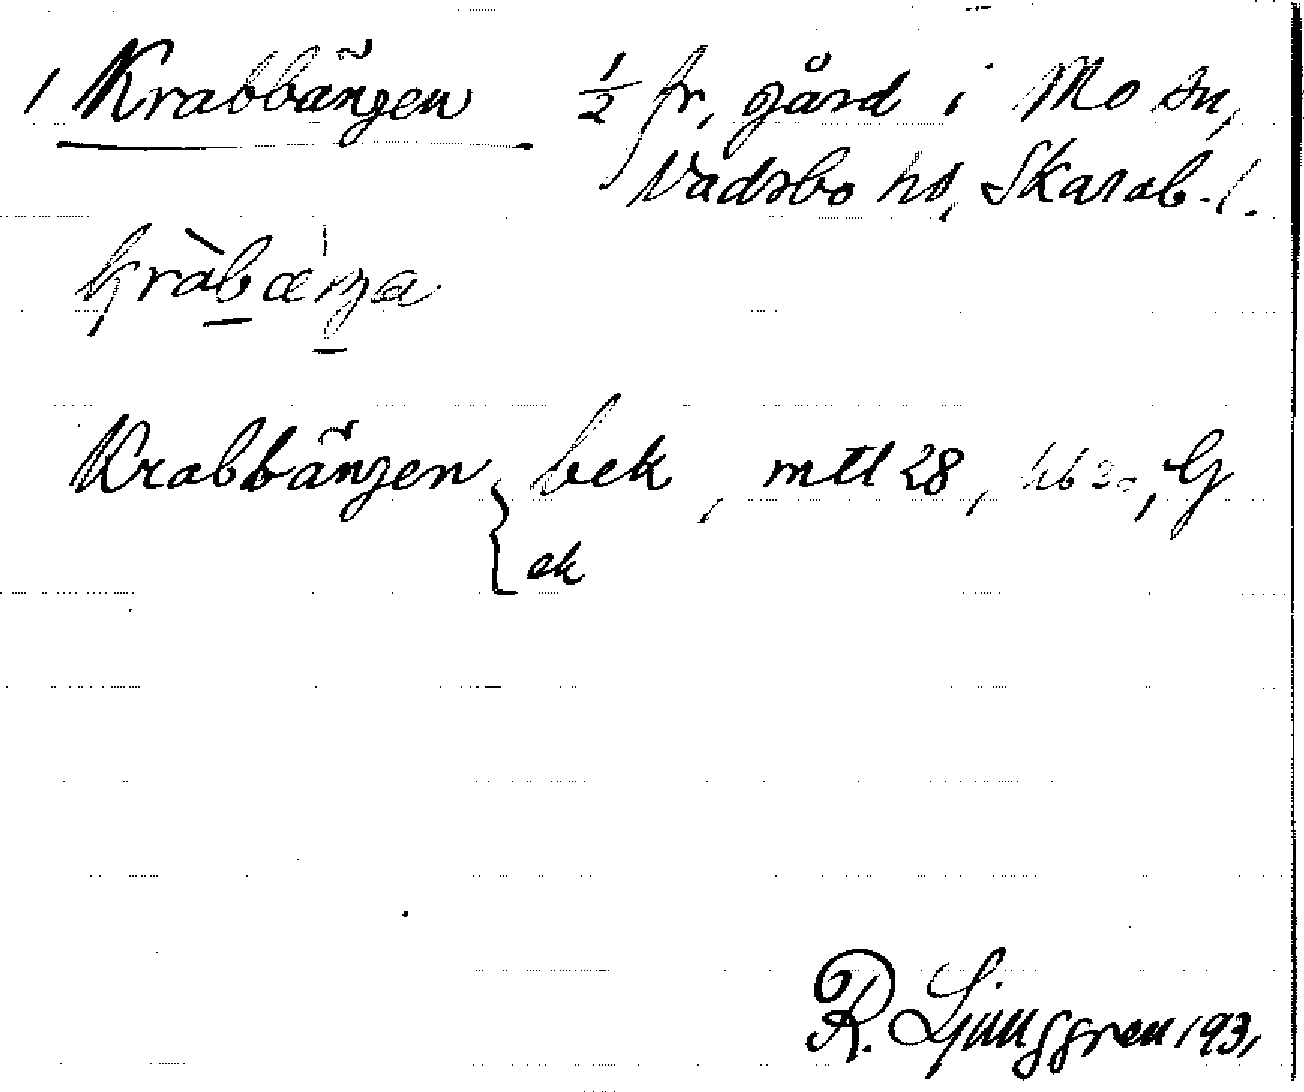 1 Krabbängen ½ fr. gård i Mo sn,
Vadsbo hd, Skarab. l.
kràbæ̀ŋa
Krabbängen { bek, mtl 28, hb 30, G
ek
R. Ljunggren 1931